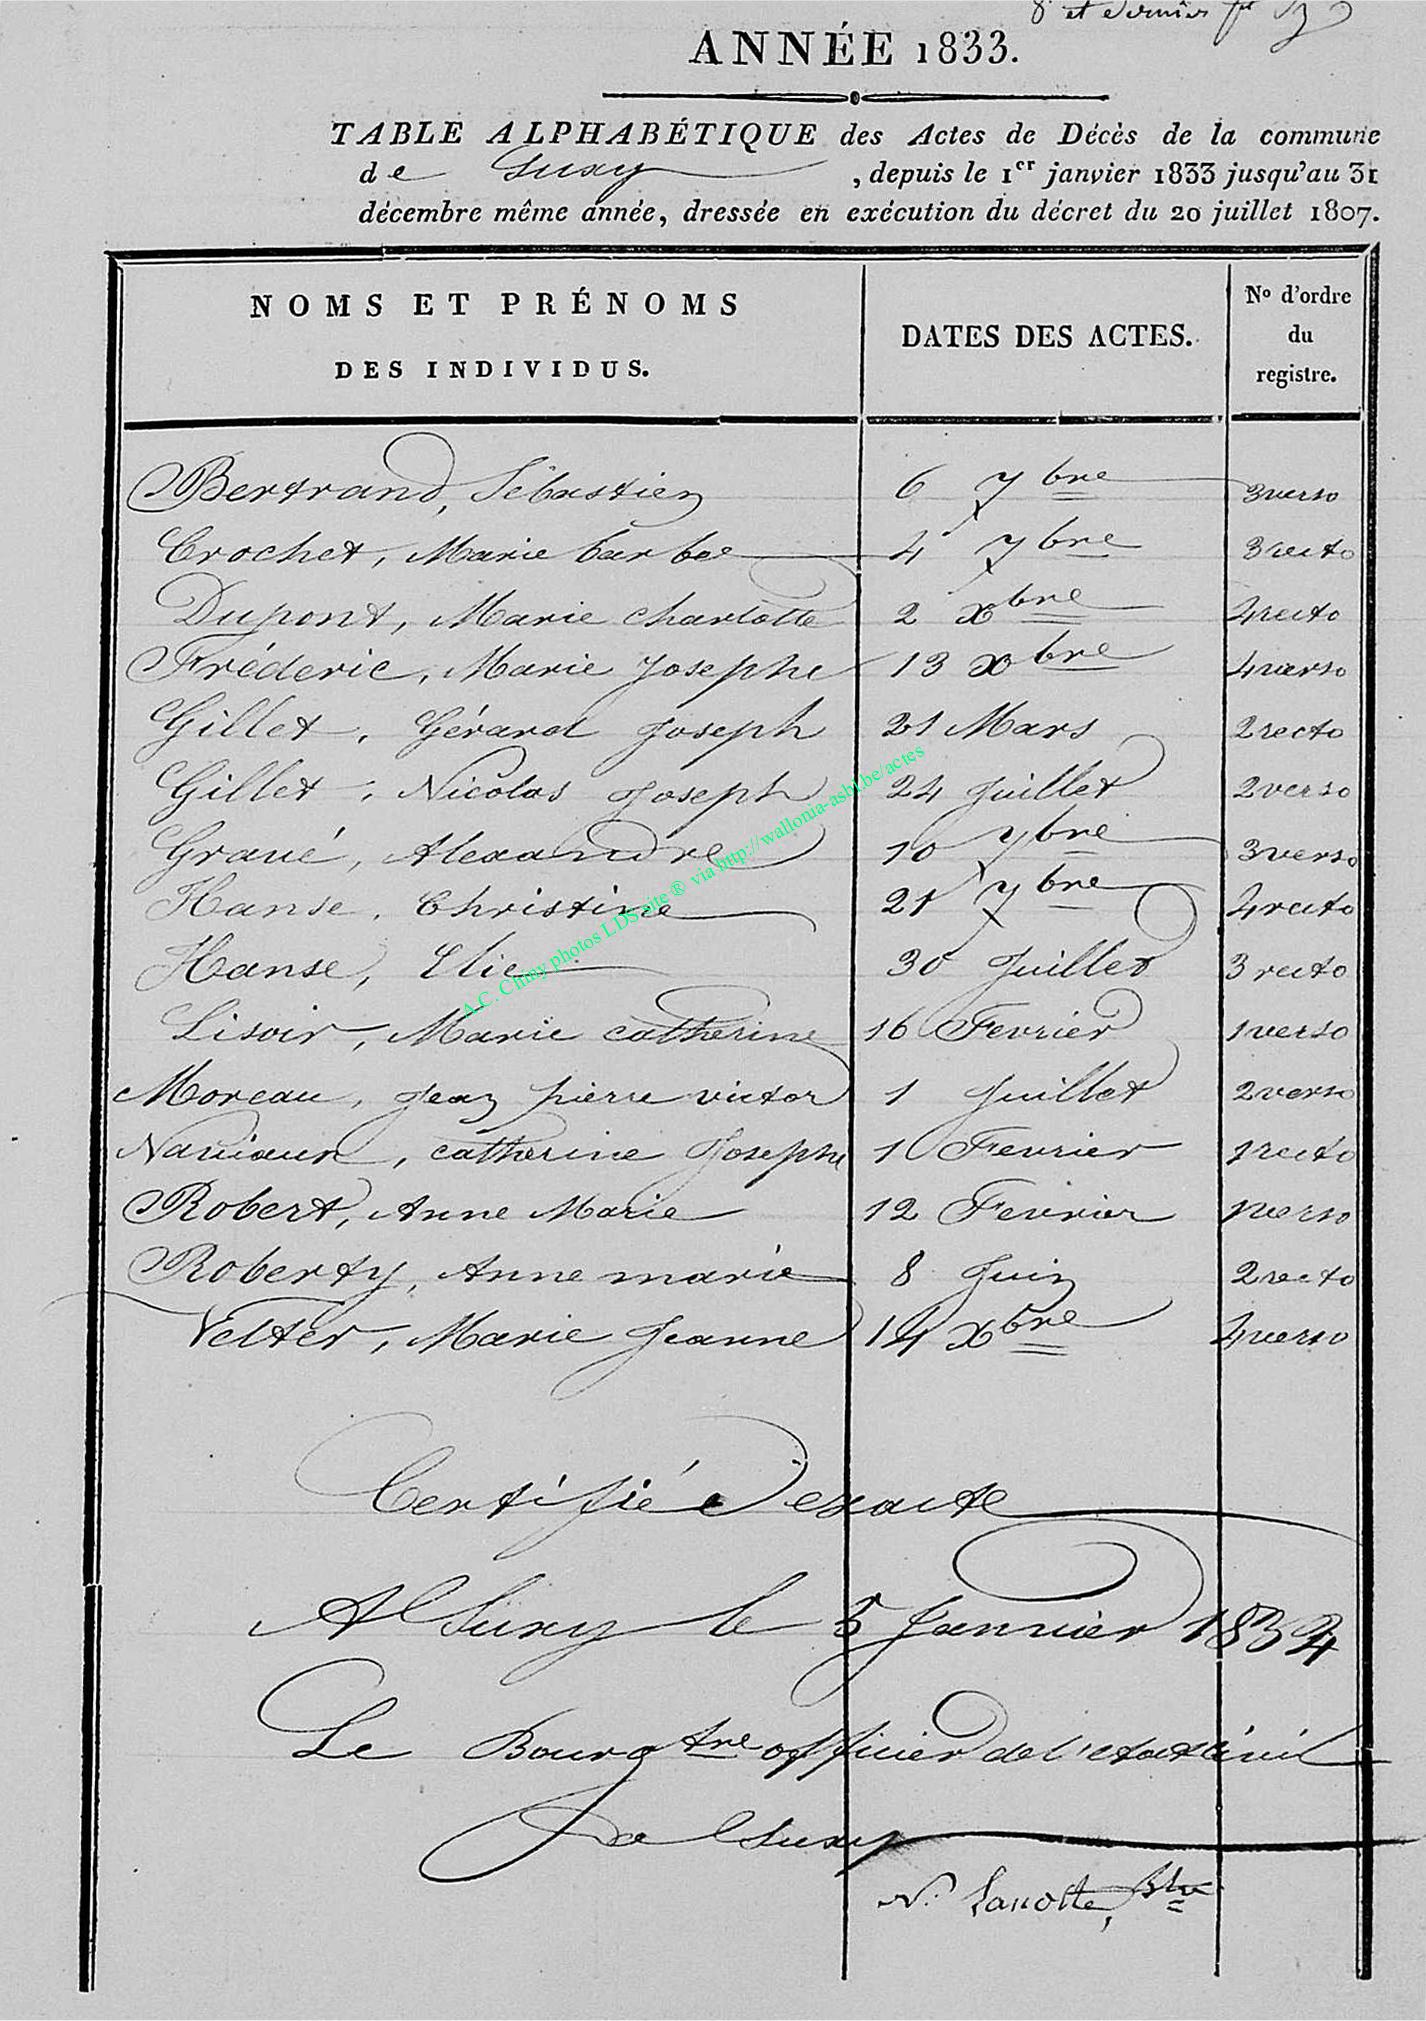 8e et dernier ft
ANNÉE 1833.
TABLE ALPHABÉTIQUE des Actes de Décès de la commune
de Suxy, depuis le 1er janvier 1833 jusqu'au 31
décembre même année, dressée en exécution du décret du 20 juillet 1807.
NOMS ET PRÉNOMS
DES INDIVIDUS.
DATES DES ACTES.
No d'ordre
du
registre.
Bertrand, Sébastien 6 7bre 3 verso
Crochet, Marie barbe 4 7bre 3 recto
Dupont, Marie charlotte 2 Xbre 4 recto
Fréderic, Marie Josephe 13 Xbre 4 verso
Gillet, Gérard Joseph 21 Mars 2 recto
Gillet, Nicolas Joseph 24 Juillet 2 verso
Gravé, Alexandre 10 7bre 3 verso
Hanse, Christine 21 7bre 4 recto
Hanse, Elie 30 Juillet 3 recto
Lisoir, Marie catherine 16 Fevrier 1 verso
Moreau, Jean pierre victor 1 Juillet 2 verso
catherine Josephe 1 Fevrier 1 recto
Robert, Anne Marie 12 Fevrier 1 verso
Roberty, Anne marie 8 Juin 2 recto
Velter, Marie Jeanne 14 Xbre 4 verso
A.C. Chiny photos LDS site ® via http://wallonia-asbl.be/actes
Certifiée exacte
A Suxy le 5 Janvier 1834
Le Bourgtre officier de l'etat civil
de Suxy
N. Lanotte, Btre